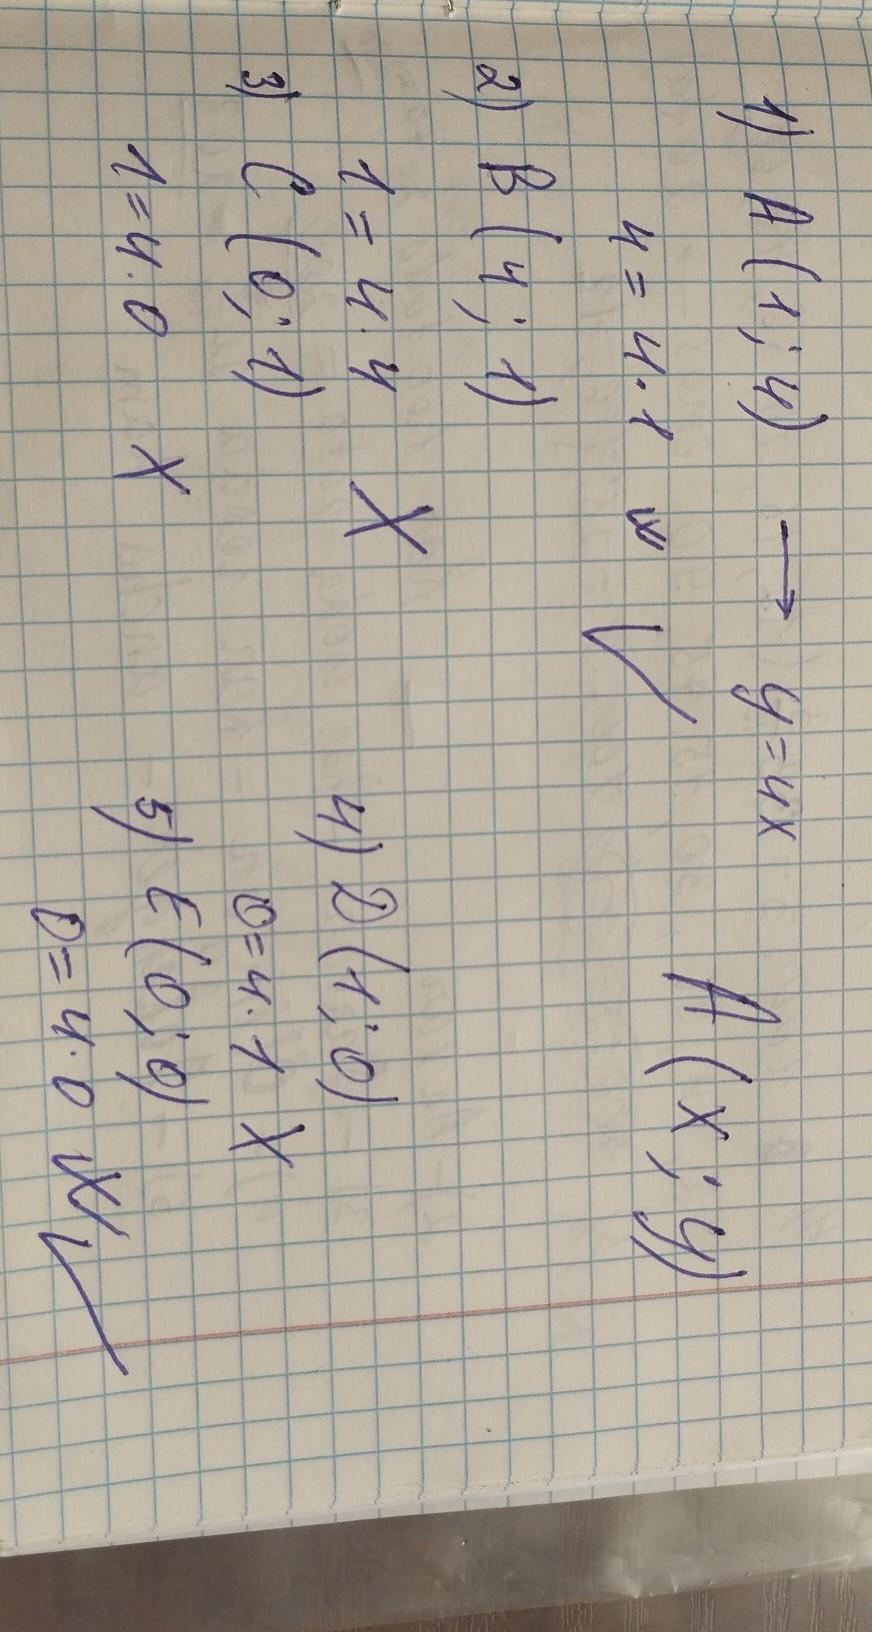 1) A (1; 4) → y = 4x
4 = 4 · 1 и
A (x; y)
2) B (4; 1)
1 = 4 · 4 X
3) C (0; 1)
1 = 4 · 0 X
4) D (1; 0)
0 = 4 · 1 X
5) E (0; 0)
0 = 4 · 0 и